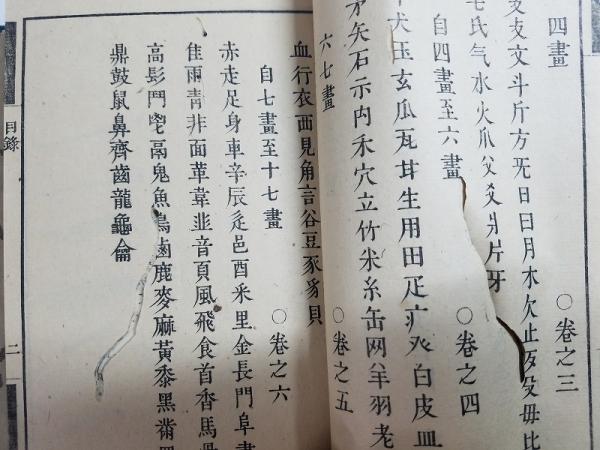 四畫
攴文斗斤方旡日曰月木欠止歹殳毋比
毛氏气水火爪父爻爿片牙
○卷之三
自四畫至六畫
牛犬玉玄瓜瓦甘生用田疋疒癶白皮皿
○卷之四
矛矢石示禸禾穴立竹米糸缶网羊羽老
六七畫
○卷之五
血行衣襾見角言谷豆豕豸貝
自七畫至十七畫
赤走足身車辛辰辵邑酉釆里金長門阜
○卷之六
隹雨靑非面革韋韭音頁風飛食首香馬
高髟鬥鬯鬲鬼魚鳥鹵鹿麥麻黃黍黑黹
鼎鼓鼠鼻齊齒龍龜龠
目錄
二